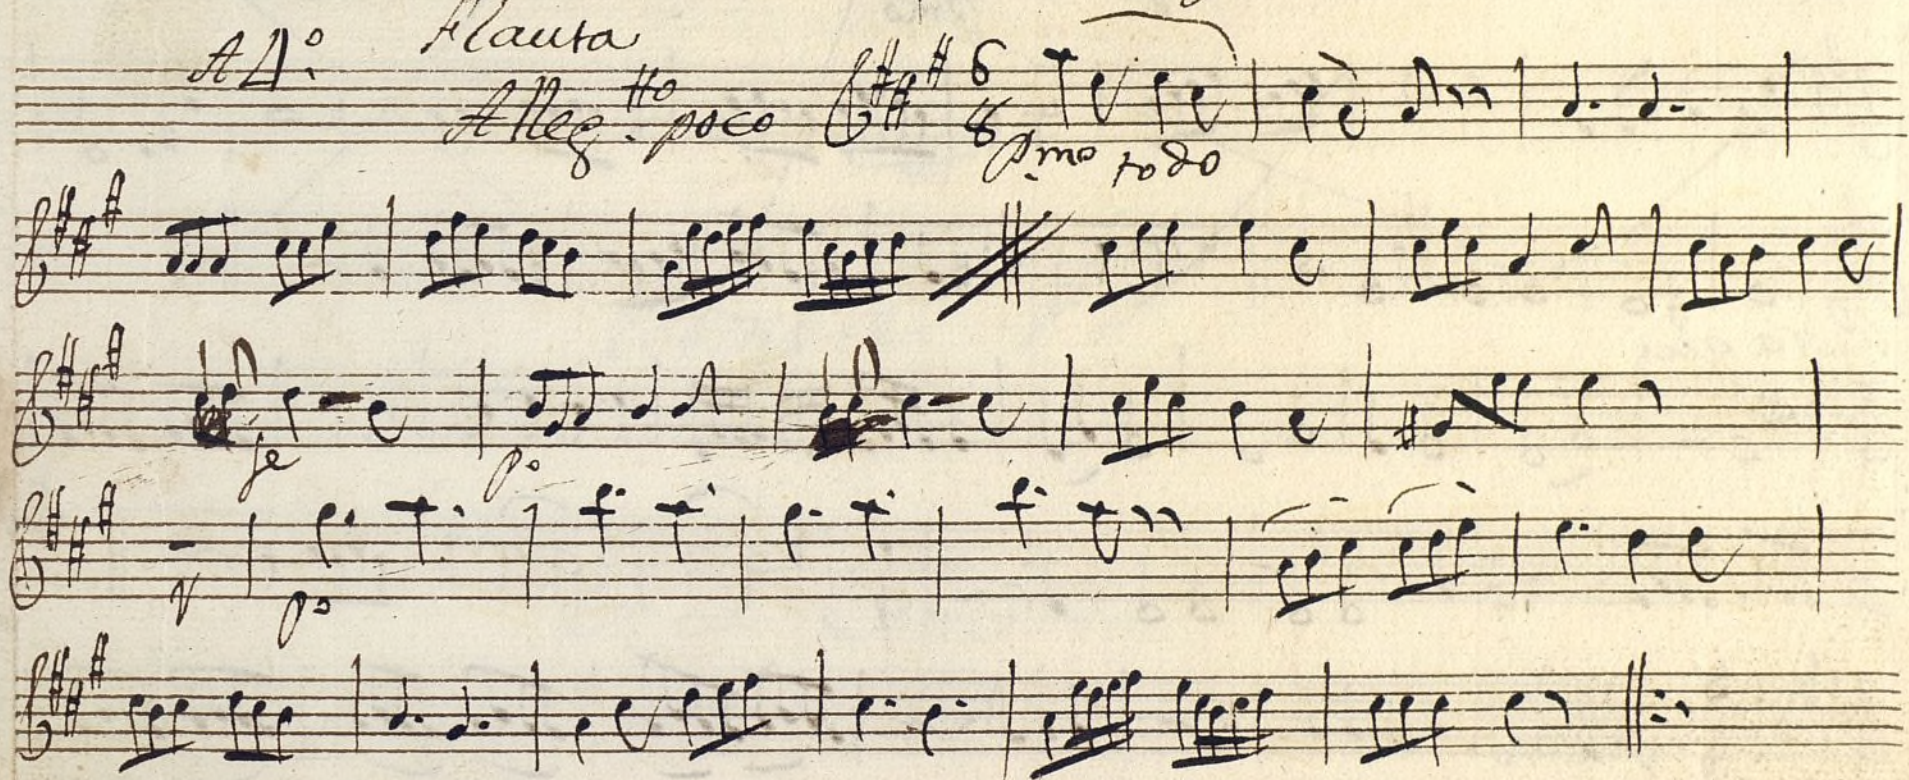 A 4º. Flauta
Alleg.tto poco 6 8
p.mo todo
fe pº
pº